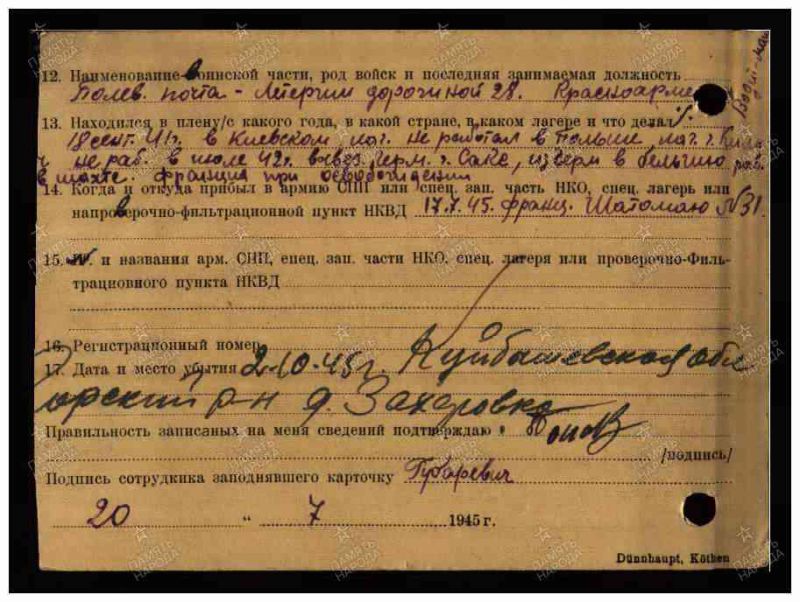 12. Наименоваине воинской части, род войск и последняя занимаемая должность
Полев. почта - дорогиной 28. Красноарме
13. Находился в плену/с какого года, в какой стране, в каком лагере и что делал/.
18 сент. 41г. в Киевском лаг. не работал в Польши лаг. г.
не раб. в июле 42г. вывез. Герм. г. Саке, из Герм в Бельгию раб.
в шахте. Франция при освобождении
14. Когда и откуда прибыл в армию СПП или спец. зап. часть НКО, спец. лагерь или
напроверочно-фильтрационной пункт НКВД 17.7.45. франц. Шатомаю №31
15. №. и названия арм. СПП, епец. зап. части НКО. спец. лагеря или проверочно-Филь-
трациовного пункта НКВД
16. Регистрационный номер
17. Дата и место убытия 2-10-45г. Куйбышевская обл
орский р-н д. Захаровка
Правильность записазных на меня сведений подтверждаю
/подпись/
Подпись сотрудкика заподнявшего карточку Губаревич
20 “ 7 1945 г.
Dünnhaupt, Köthen
ПАМЯТЬ НАРОДА